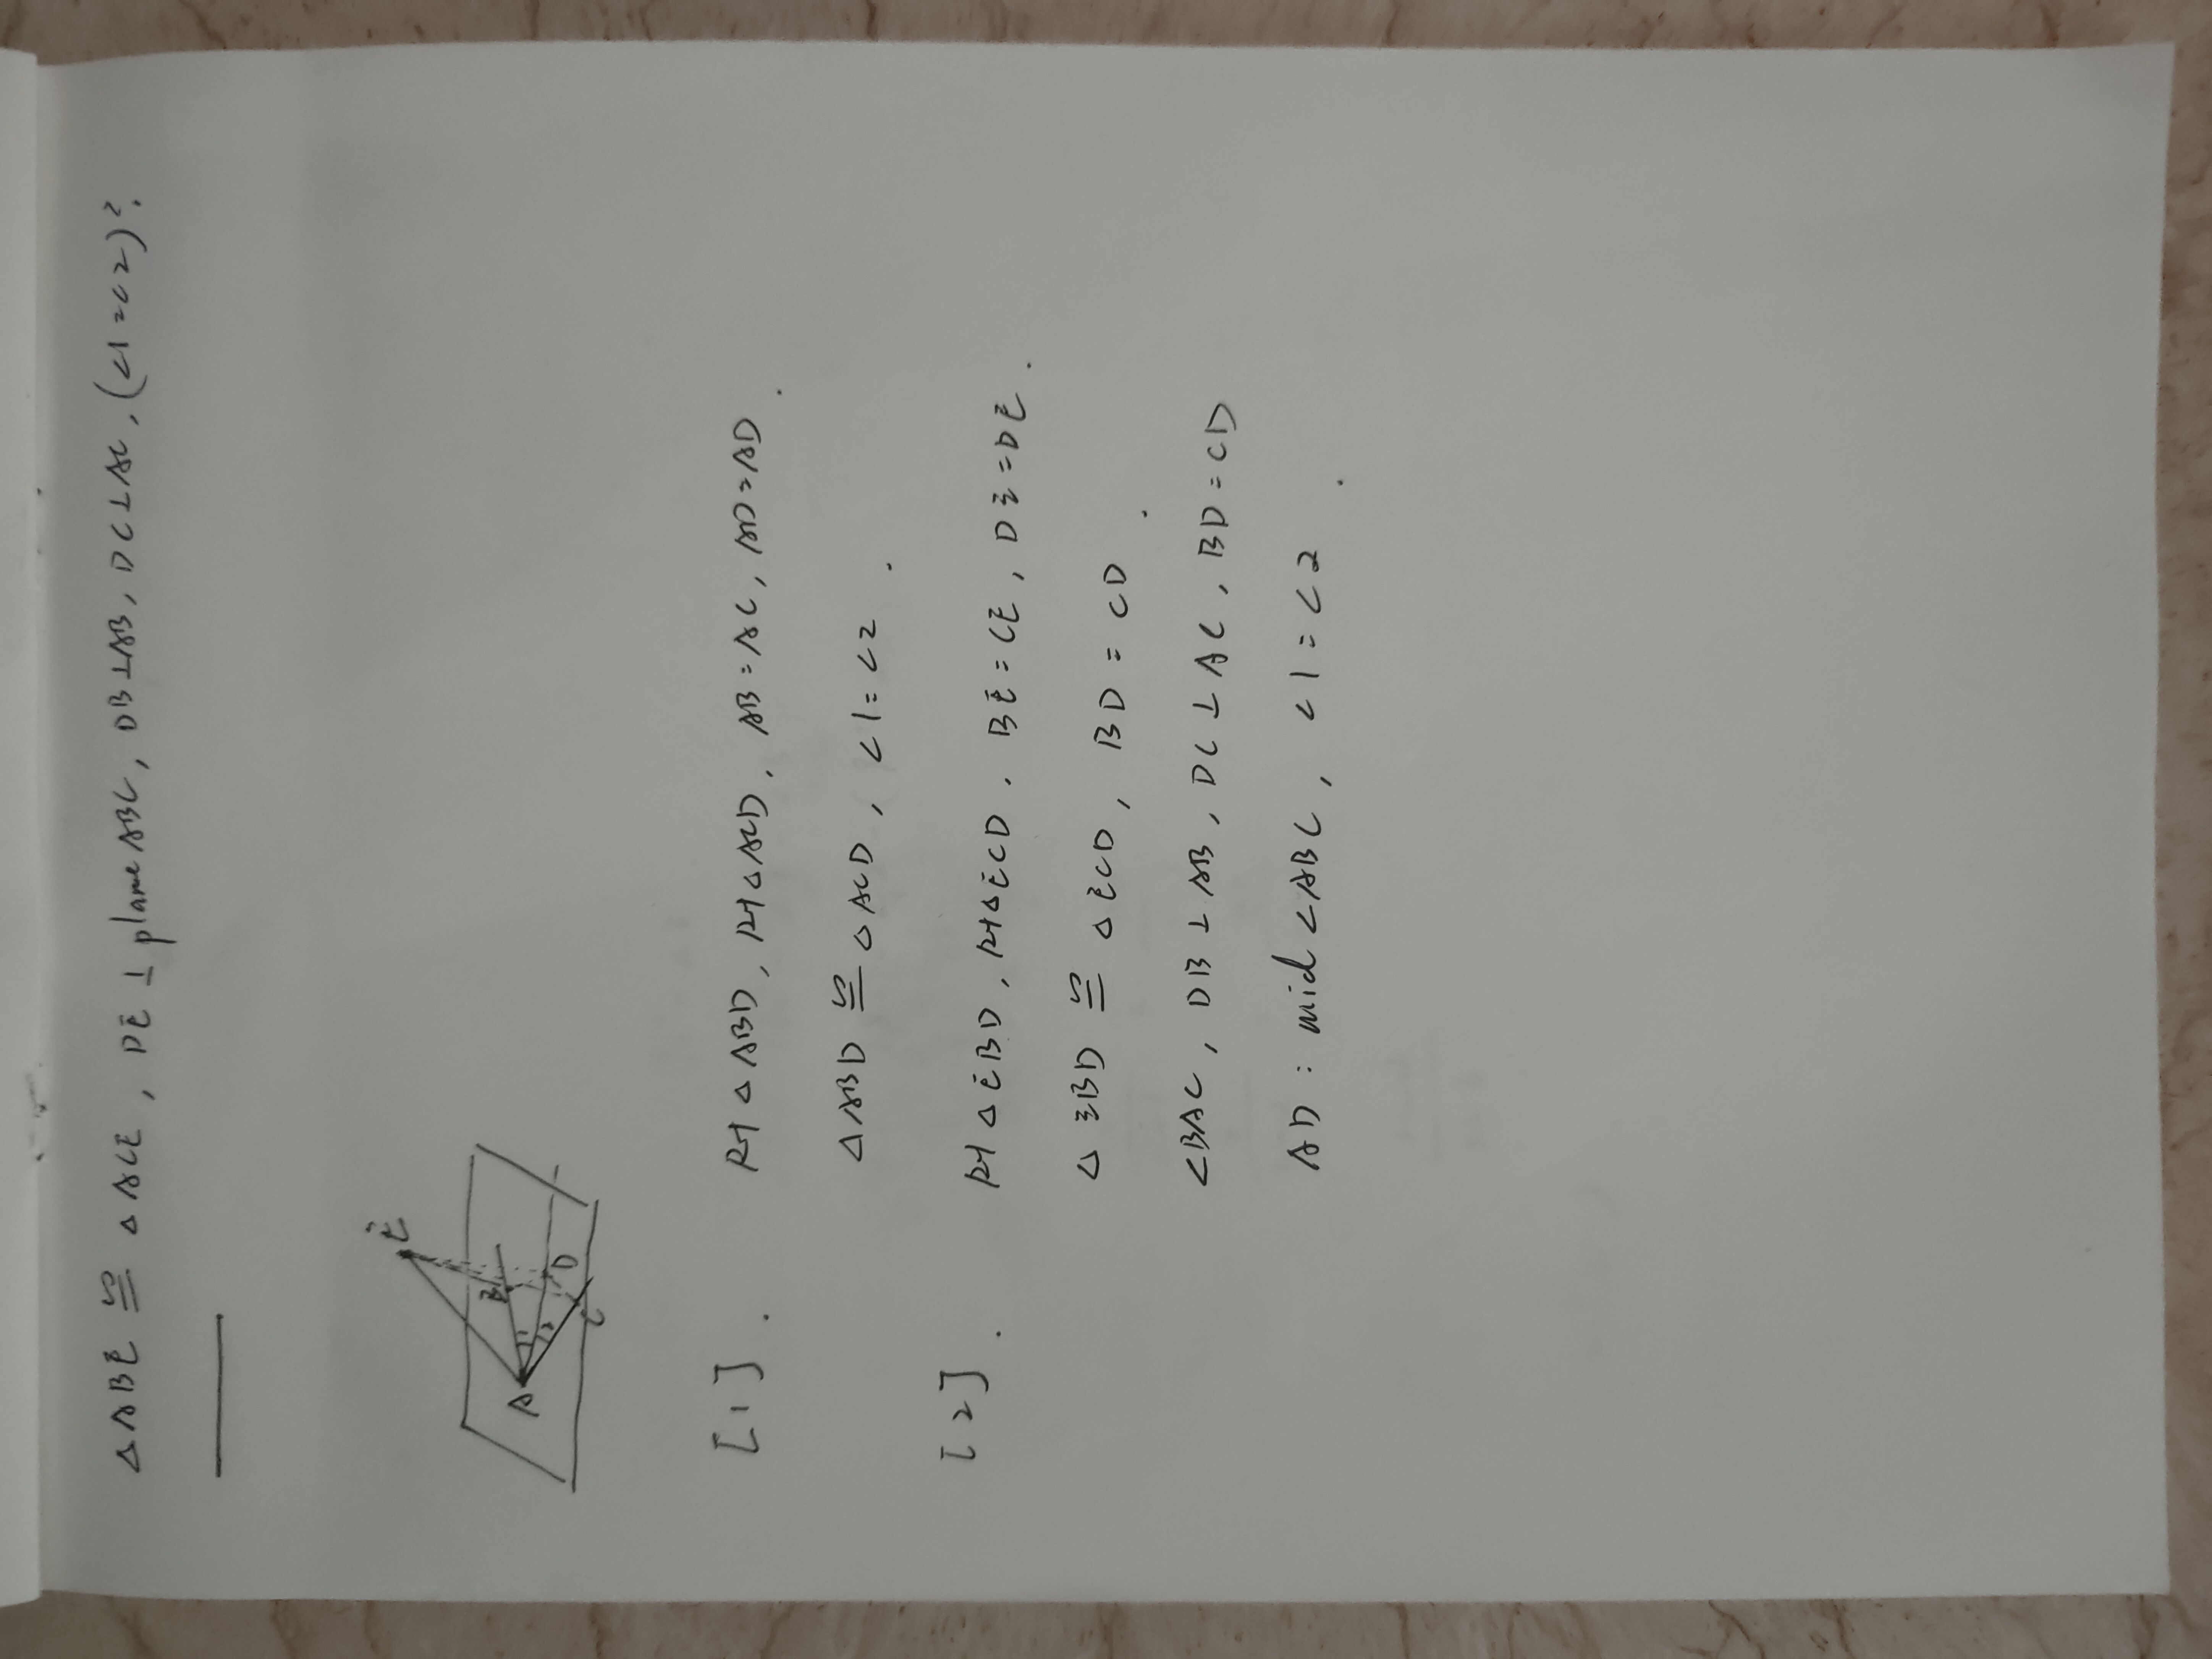 △ABE ≌ △ACE, DE ⊥ plane ABC, DB⊥AB, DC⊥AC, (∠1=∠2)?
E
B
A
1
2
D
C
[1]. Rt△ABD, Rt△ACD. AB=AC, AD=AD.
△ABD ≌ △ACD, ∠1=∠2.
[2]. Rt△EBD, Rt△ECD. BE=CE, DE=DE.
△EBD ≌ △ECD, BD=CD.
∠BAC, DB⊥AB, DC⊥AC, BD=CD
AD: mid∠ABC, ∠1=∠2.